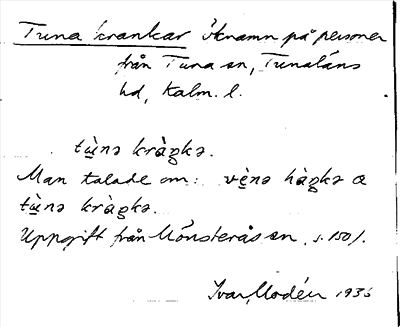 Tuna krankar Öknamn på personer
från Tuna sn, Tunaläns
hd, Kalm. l.
tṳ̀nə kràŋkə.
Man talade om: vḛ̀nə hàŋkə œ
tṳ̀nə kràŋkə.
Uppgift från Mönsterås sn. s. 150/.
Ivar Modéer 1936